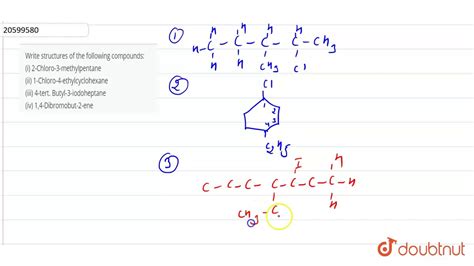 20599580
Write structures of the following compounds:
(i) 2-Chloro-3-methylpentane
(ii) 1-Chloro-4-ethylcyclohexane
(iii) 4-tert. Butyl-3-iodoheptane
(iv) 1,4-Dibromobut-2-ene
1
H H H H
H-C-C-C-C-CH3
H H CH3 Cl
2
Cl
1
2
4 3
C2H5
3
I H
C-C-C-C-C-C-C-H
H
CH3-C
doubtnut